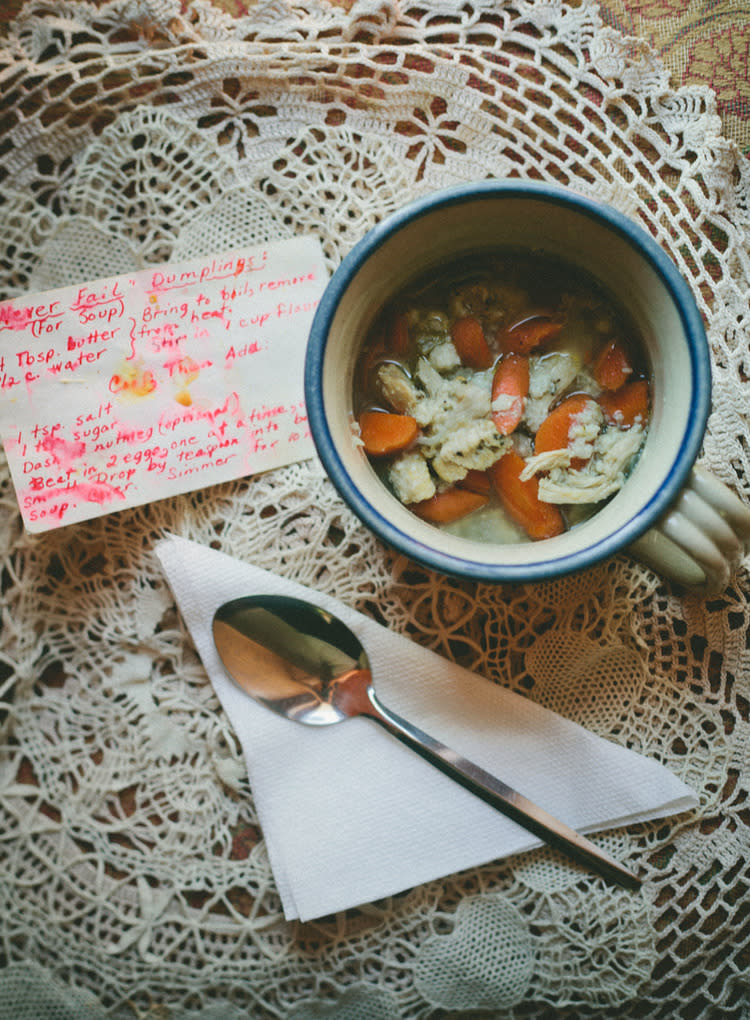 "Never Fail" Dumplings:
(for Soup)
Tbsp. butter } Bring to boil, remove
/2 c. water } from heat.
Stir in 1 cup flour
Then Add:
1 tsp. salt
1 tsp. sugar
Dash nutmeg (optional)
Beat in 2 eggs, one at a time,
smooth. Drop by teaspoon into
soup. Cover. Simmer for 10